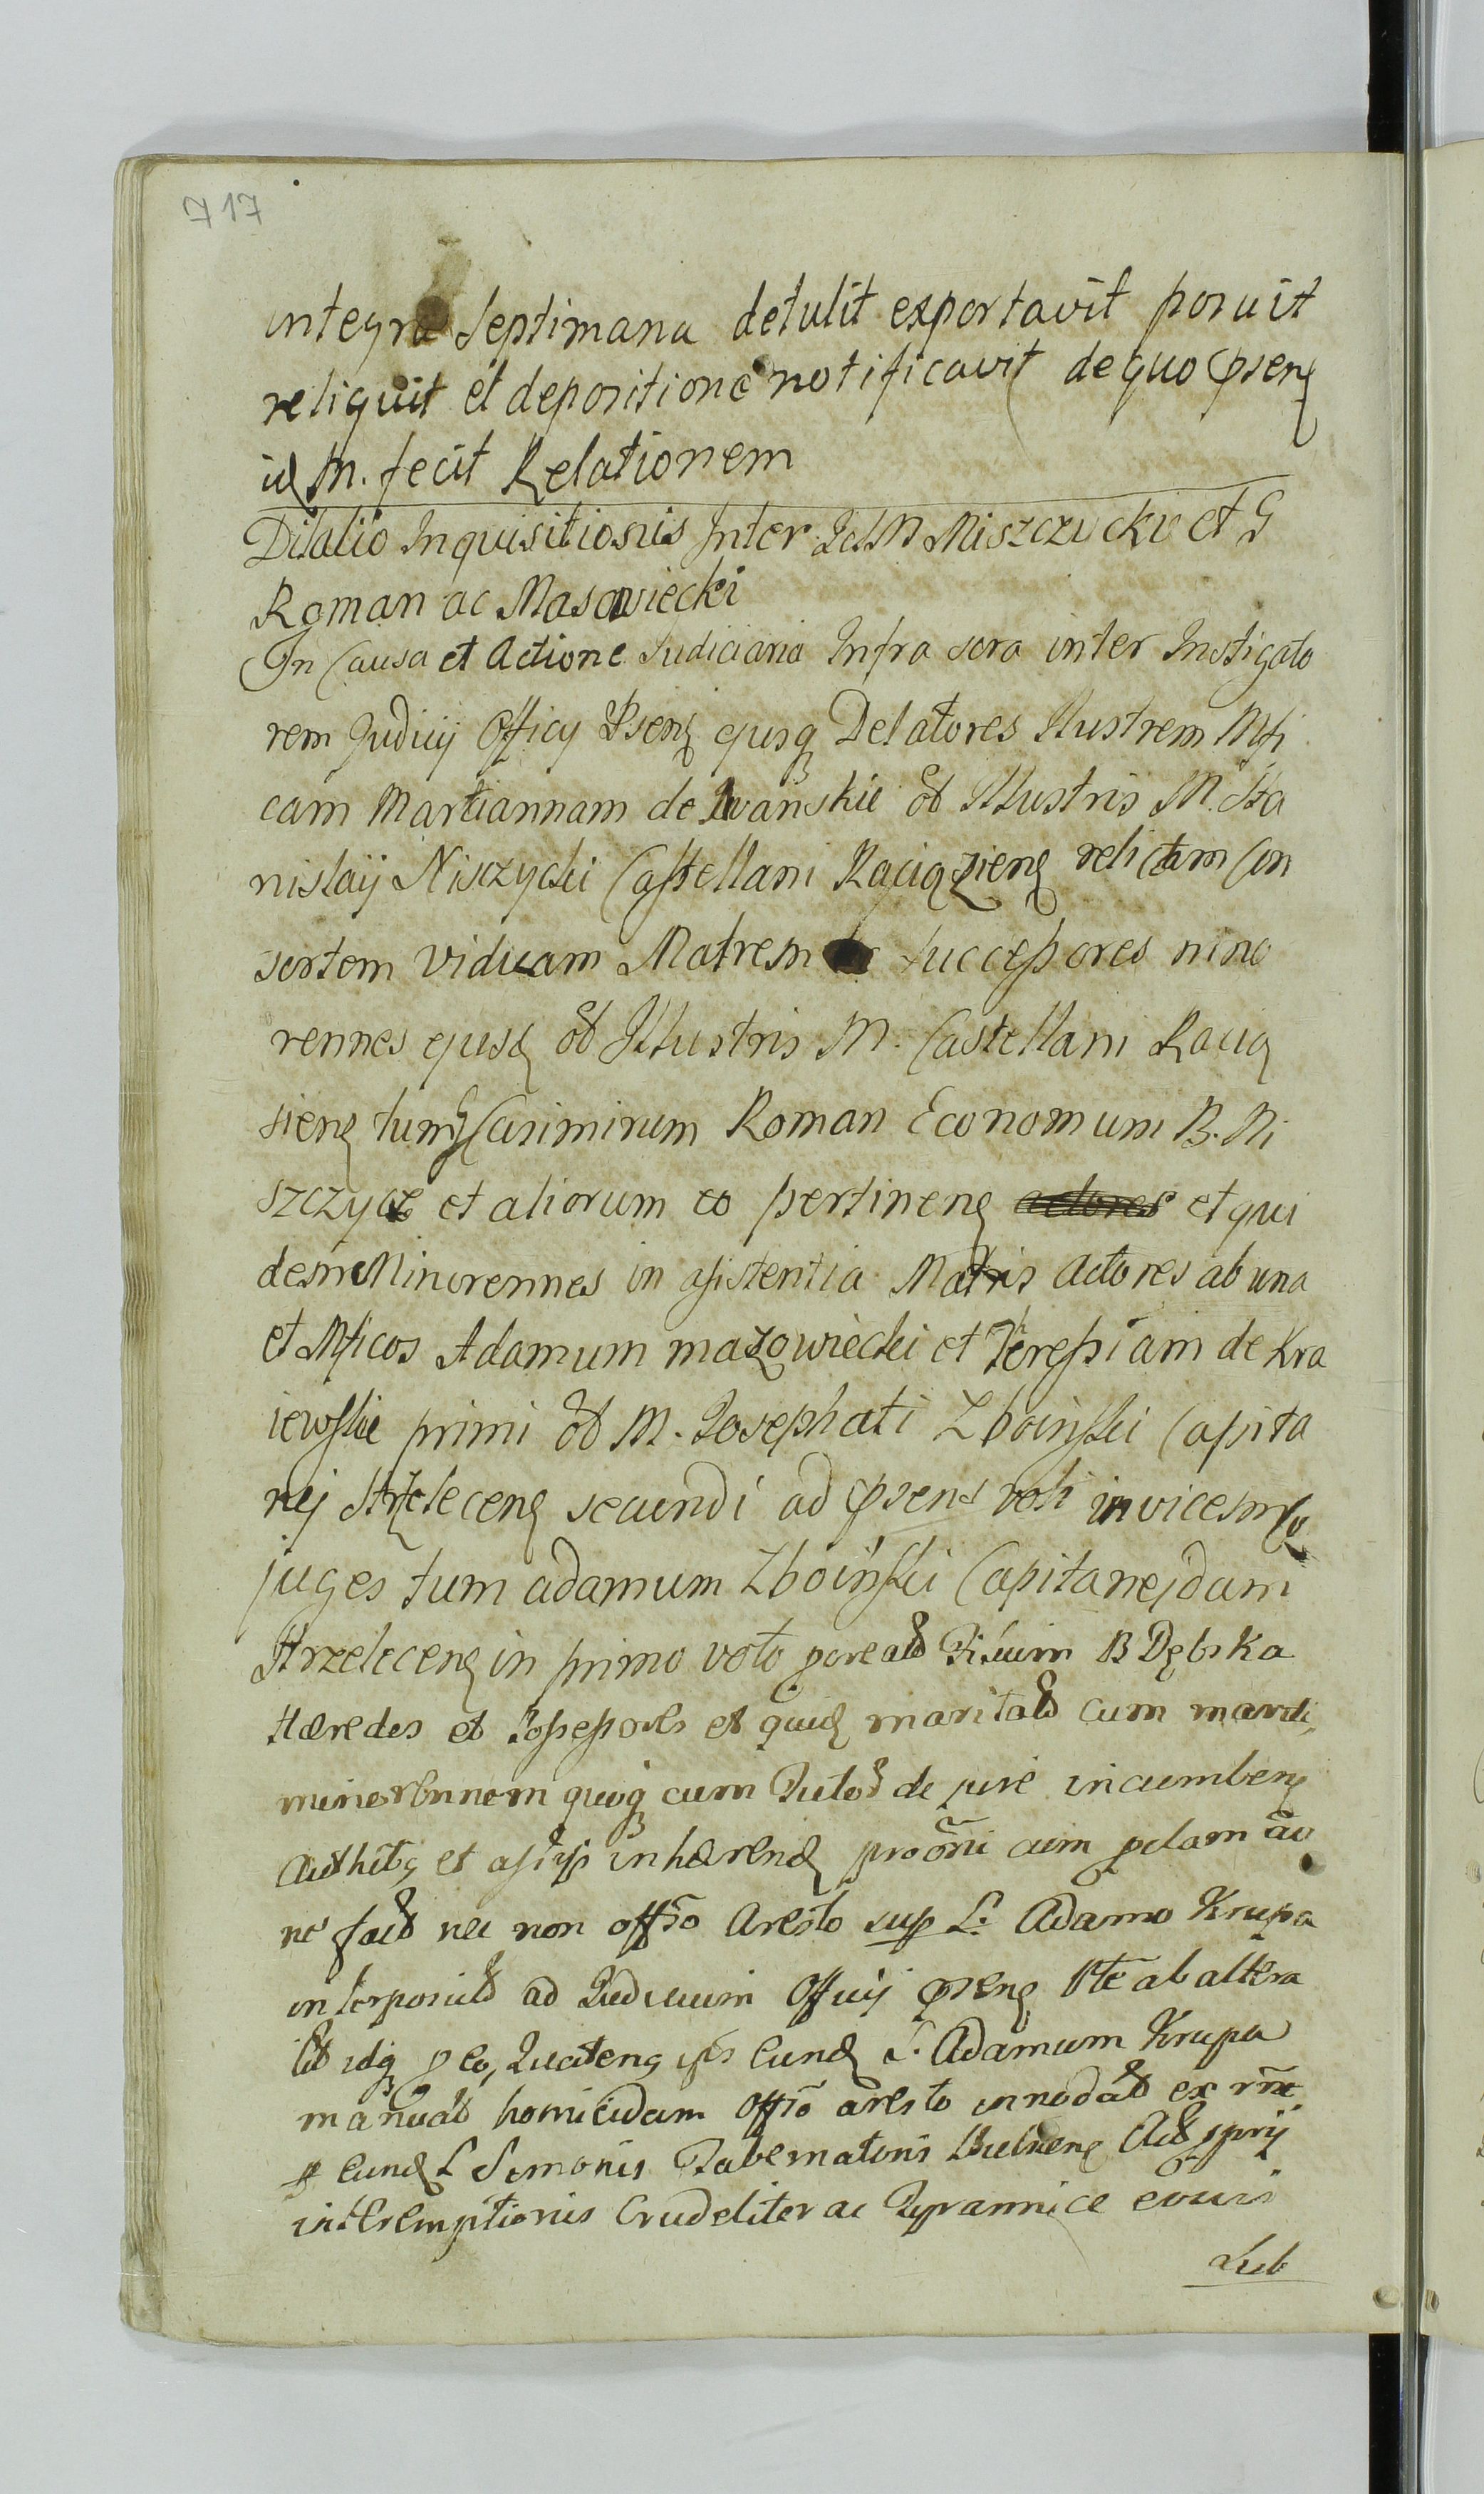 717
integra Septimana detulit exportavit posuit
reliquit et depositione notificavit de quo psens
id M. fecit Relationem
Dilatio Inquisitionis Inter M Niszczycki et G
Roman ac Masowiecki
In Causa et Actione Judiciaria Infra scra inter Instigato
rem Judicij Officij Psens ejusq Delatores Illustrem Mfi
cam Martiannam de Iwanskie ol Illustris M. Sta
nislaij Niszzycki Castellani Raciąziens relictam Con
sortem viduam Matrem successores mino
rennes ejusd ol Illustris M. Castellani Racią
ziens tum G Casimirum Roman Economum B. Ni
szczyce et aliorum eo pertinens actores et qui
dem Minorennes in assistentia Matris Actores ab una
et Mficos Adamum mazowiecki et Theressiam de Kra
iewskie primi ol M. Josephati Zboinski Capita
nej Strzelecens secundi ad psens voti invicem Co
juges tum adamum Zboinski Capitanejdam
Strzelecens in primo voto Filium B Dębska
Hæredes et Possessores et quid maritali cum mariti
minorennem quoq cum Tutor de jure incumbens
Authte et assis inhærend proōni cum
ne fact nec non offso Aresto sup L. Adamo Krupa
interposito ad Judicium Officij psens Pte ab altera
Et idq p eo, Quatens ipsi eund L. Adamum Krupa
manual homicidam offso aresto innodat ex rne
p eund L Simonis Tabernatoris Act sprij
interemptionis Crudeliter ac Tyrannice
Lub